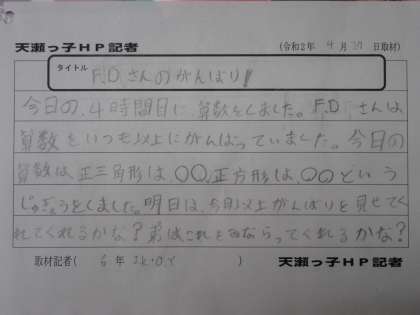 天瀬っ子HP記者 (令和2年 4月 30 日取材)
タイトル F.D.さんのがんばり!
今日の、4時間目に、算数をしました。F.Dさんは
算数をいつも以上にがんばっていました。今日の
算数は、正三角形は〇〇、正方形は、〇〇という
じゅぎょうをしました。明日は、今日以上がんばりを見せてく
れてくれるかな?弟はこれをみならってくれるかな?
取材記者( 6 年 )
天瀬っ子HP記者